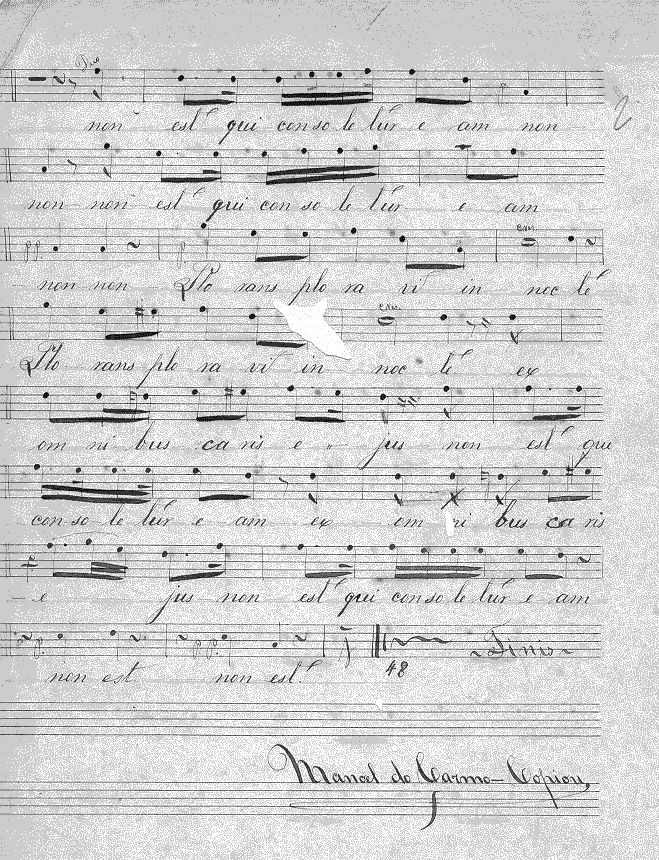 Duo
non est qui con so le tur e am non
2
non non est qui con so le tur e am
pp. p
non non Plo rans plo ra vi in noc te
Plo rans plo ra vi in noc te ex
om ni bus ca ris e jus non est qui
con so le tur e am ex om ni bus ca ris
e jus non est qui con so le tur e am
p. pp.
non est non est
48 Finis
Manoel do Carmo - Copiou,